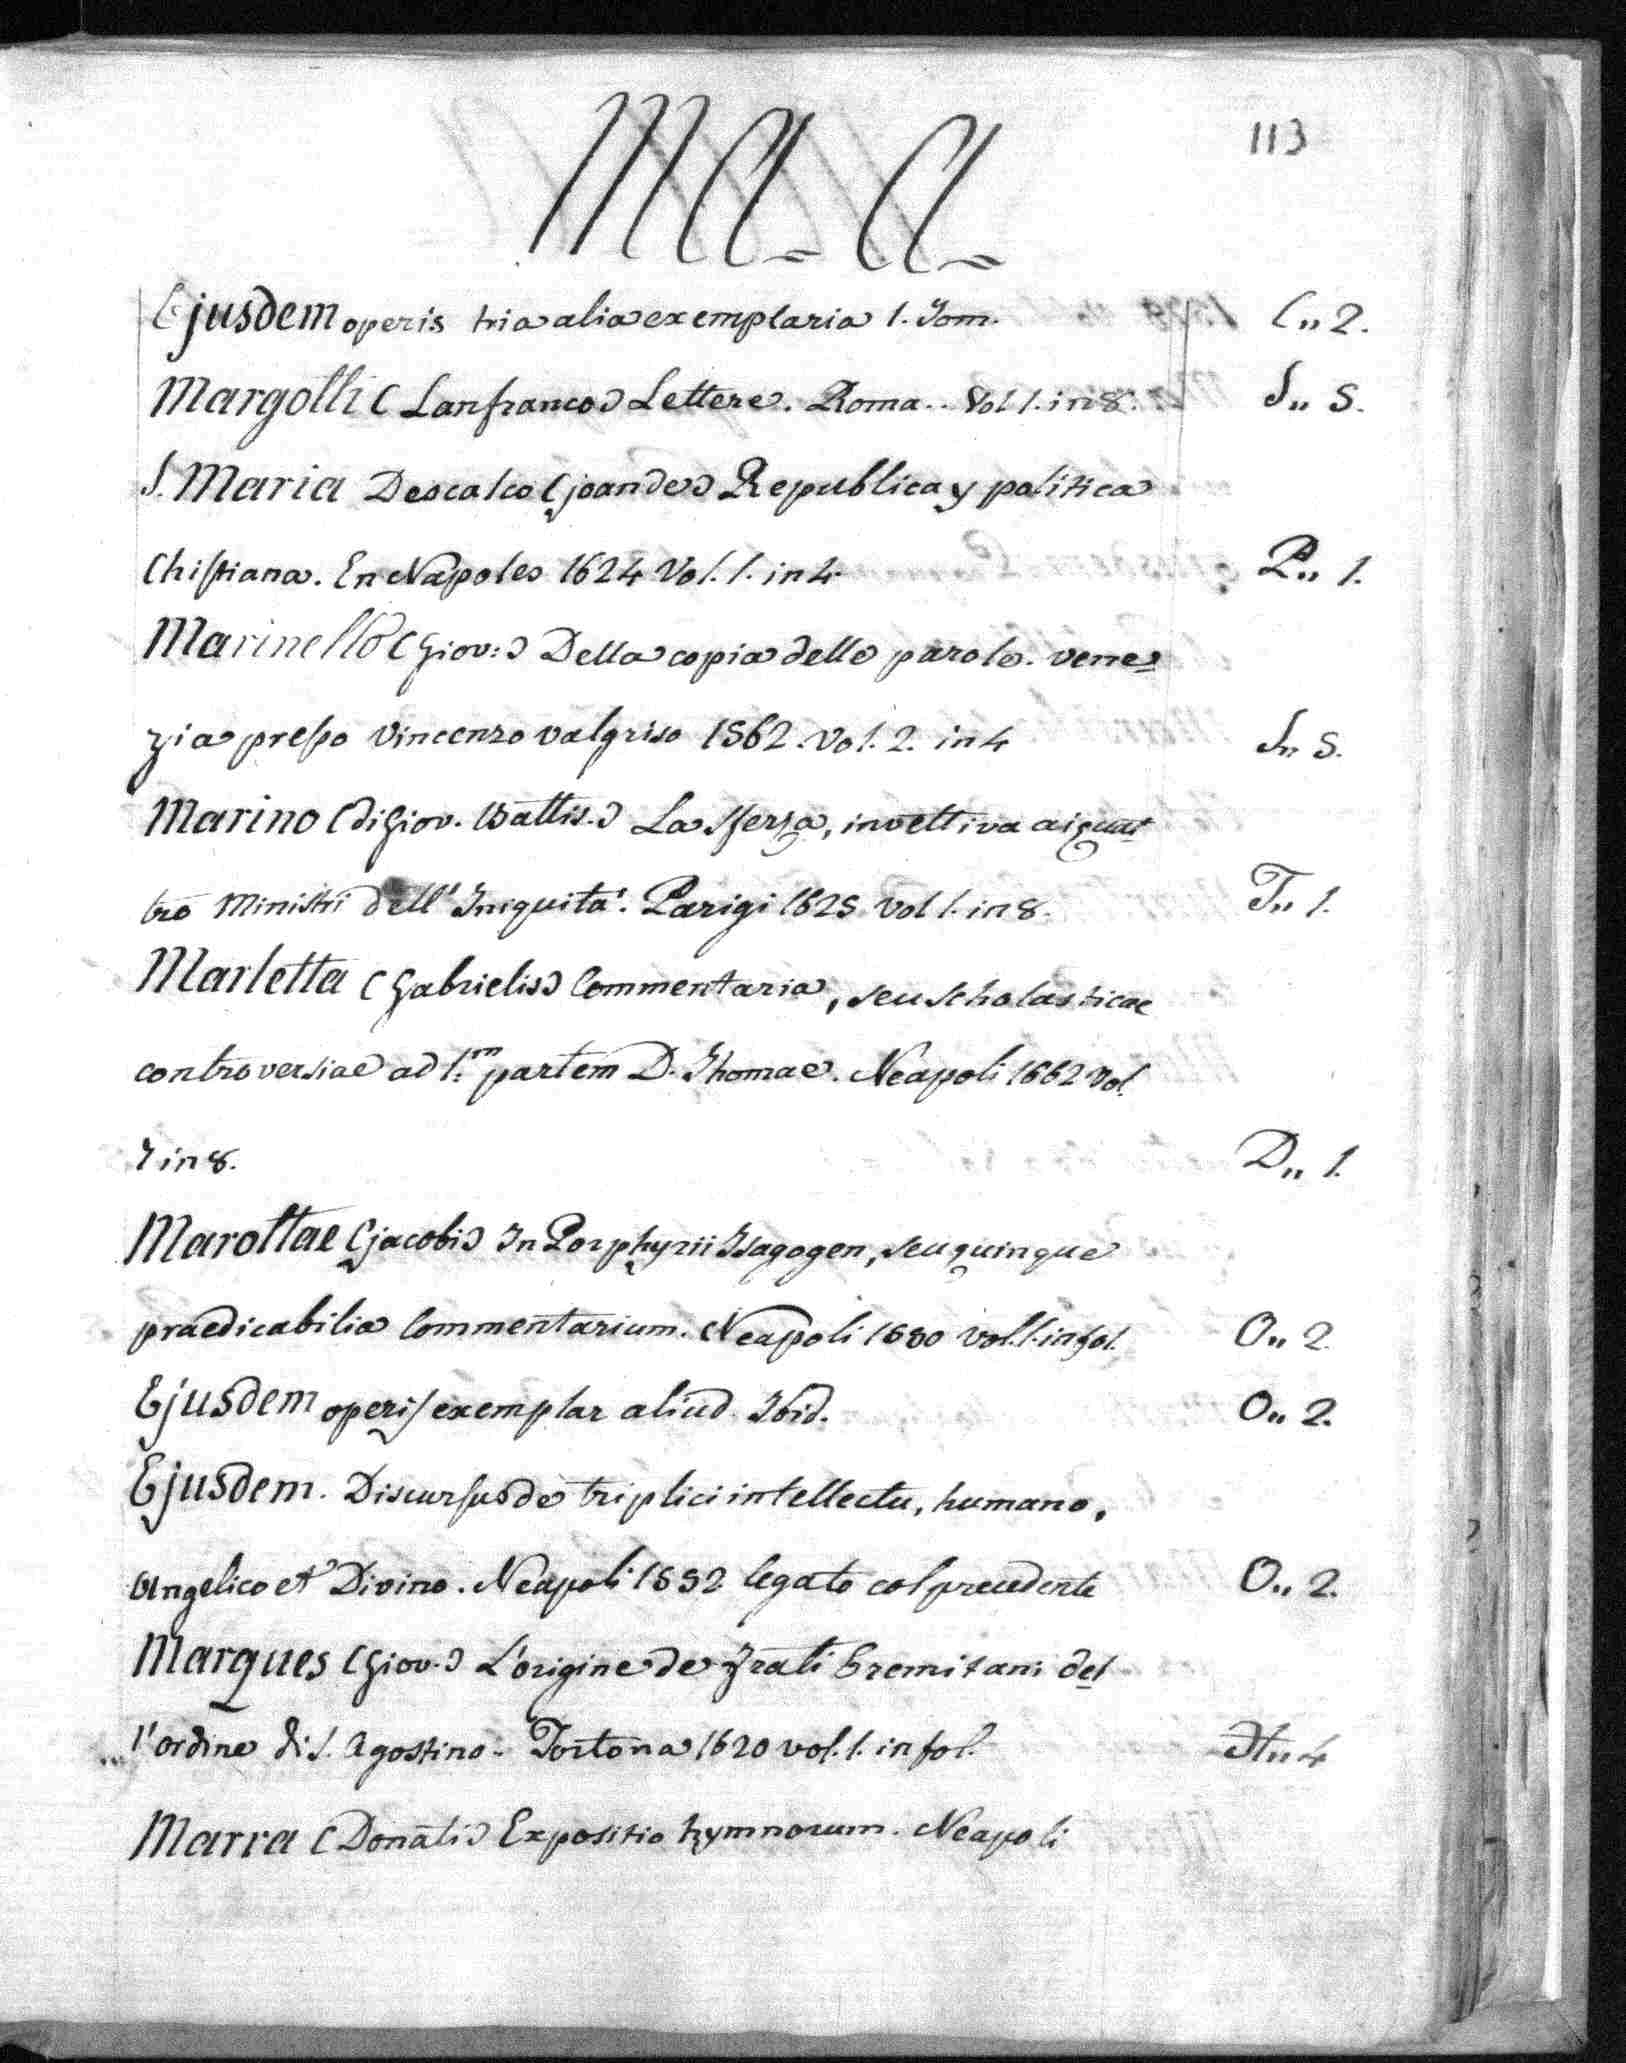 113
Ma- A-
Ejusdem operis tria alia exemplaria 1. Tom. C,, 2.
Margotti (Lanfranco) Lettere. Roma.. Vol 1. in 8. S,, 5.
S. Maria Descalco (joan de) Republica y politica
Chistiana. En Napoles 1624 Vol. 1. in 4. P,, 1.
Marinello (Giov:) Della copia delle parole. vene=
zia presso Vincenzo valgriso 1562. Vol. 2. in 4 S,, 5.
Marino (di Giov. Battis.) La Sferza, invettiva ai quat=
tro Ministri dell' Iniquita'. Parigi 1625 Vol 1. in 8. T,, 1.
Marletta (Gabrielis) Commentaria, seu scholasticae
controversiae ad 1:m partem D. Thomae. Neapoli 1662 Vol.
7 in 8. D,, 1.
Marottae (jacobi) In Porphyrii Isagogen, seu quinque
praedicabilia Commentarium. Neapoli 1590 vol. 1. in fol. O,, 2.
Ejusdem operis exemplar aliud. Ibid. O,, 2.
Ejusdem. Discursus de triplici intellectu, humano,
Angelico et Divino. Neapoli 1592 legato col precedente O,, 2.
Marques (Giov.) L'origine de frati Eremitani del
l'ordine di S. Agostino- Tortona 1620 vol. 1. in fol. H,, 4
Marra (Donati) Expositio hymnorum. Neapoli